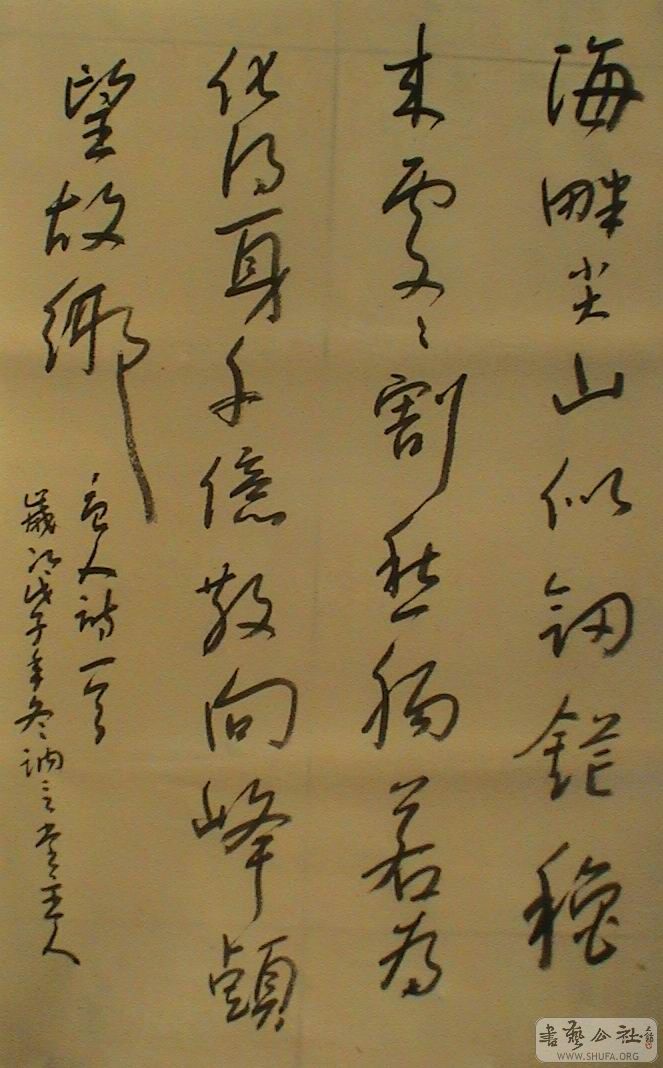 海畔尖山似釖鋩穐
来處々割愁腸若為
化得身千億散向峰頭
望故鄉
唐人詩一首
歲次戊子年冬訥言堂主人
書藝公社
WWW.SHUFA.ORG